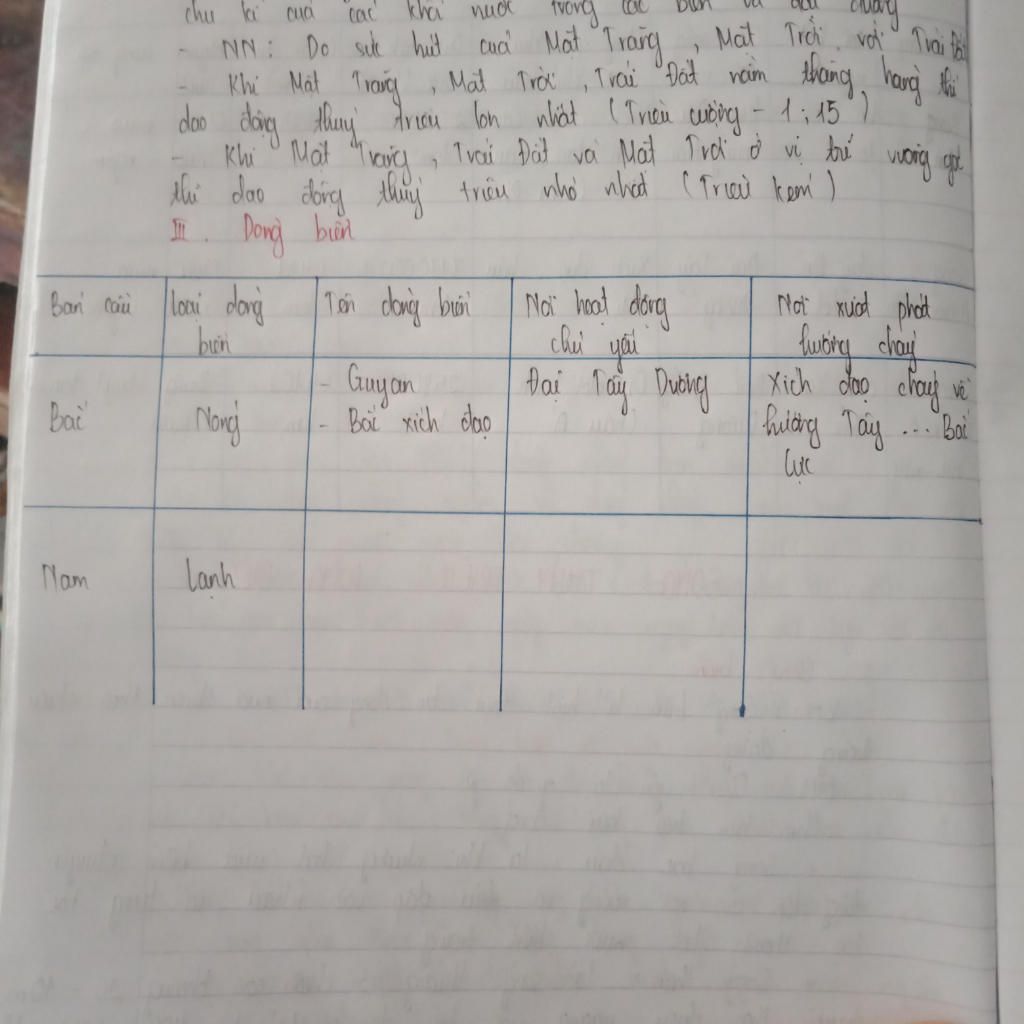 chu kì của các khối nước trong các biển và đại dương
- NN: Do sức hút của Mặt Trăng, Mặt Trời với Trái Đất
- Khi Mặt Trăng, Mặt Trời, Trái Đất nằm thẳng hàng thì
dao động thuỷ triều lớn nhất (Triều cường - 1; 15)
- Khi Mặt Trăng, Trái Đất và Mặt Trời ở vị trí vuông góc
thì dao động thuỷ triều nhỏ nhất (Triều kém)
III. Dòng biển
Bán cầu | Loại dòng biển | Tên dòng biển | Nơi hoạt động chủ yếu | Nơi xuất phát hướng chảy
Bắc | Nóng | - Guyan - Bắc xích đạo | Đại Tây Dương | Xích đạo chảy về hướng Tây ... Bắc cực
Nam | Lạnh